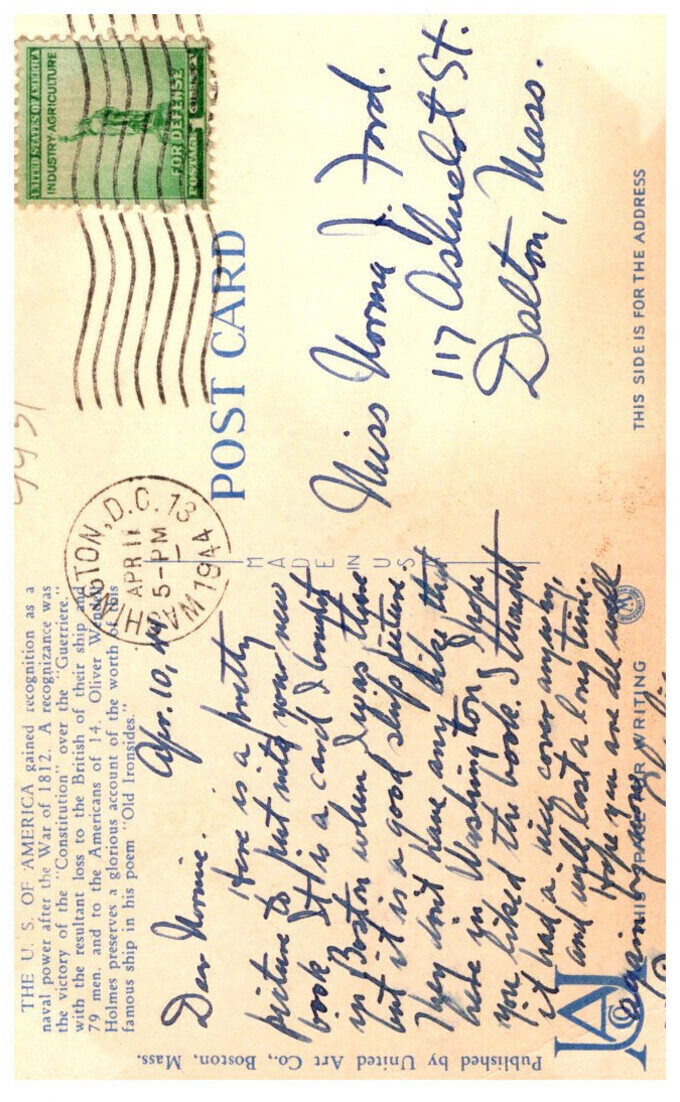 THE U. S. OF AMERICA gained recognition as a
naval power after the War of 1812. A recognizance was
the victory of the "Constitution" over the "Guerriere,"
with the resultant loss to the British of their ship and
79 men, and to the Americans of 14. Oliver Wendell
Holmes preserves a glorious account of the worth of this
famous ship in his poem "Old Ironsides."
UNITED STATES OF AMERICA
INDUSTRY·AGRICULTURE
FOR DEFENSE
POSTAGE 1
WASHINGTON, D.C. 13
APR 11
5-PM
1944
POST CARD
Apr. 10, 44
Dear Normie.
Here is a pretty
picture to put into your new
book. It is a card I bought
in Boston when I was there
but it is a good ship picture.
They don't have any like that
here in Washington. I hope
you liked the book. I thought
it had a nice cover anyway,
and will last a long time.
Hope you are all well
again
MADE IN USA
Miss Norma J. Ford.
117 Ashuelot St.
Dalton, Mass.
THIS SPACE FOR WRITING
THIS SIDE IS FOR THE ADDRESS
Published by United Art Co., Boston, Mass.